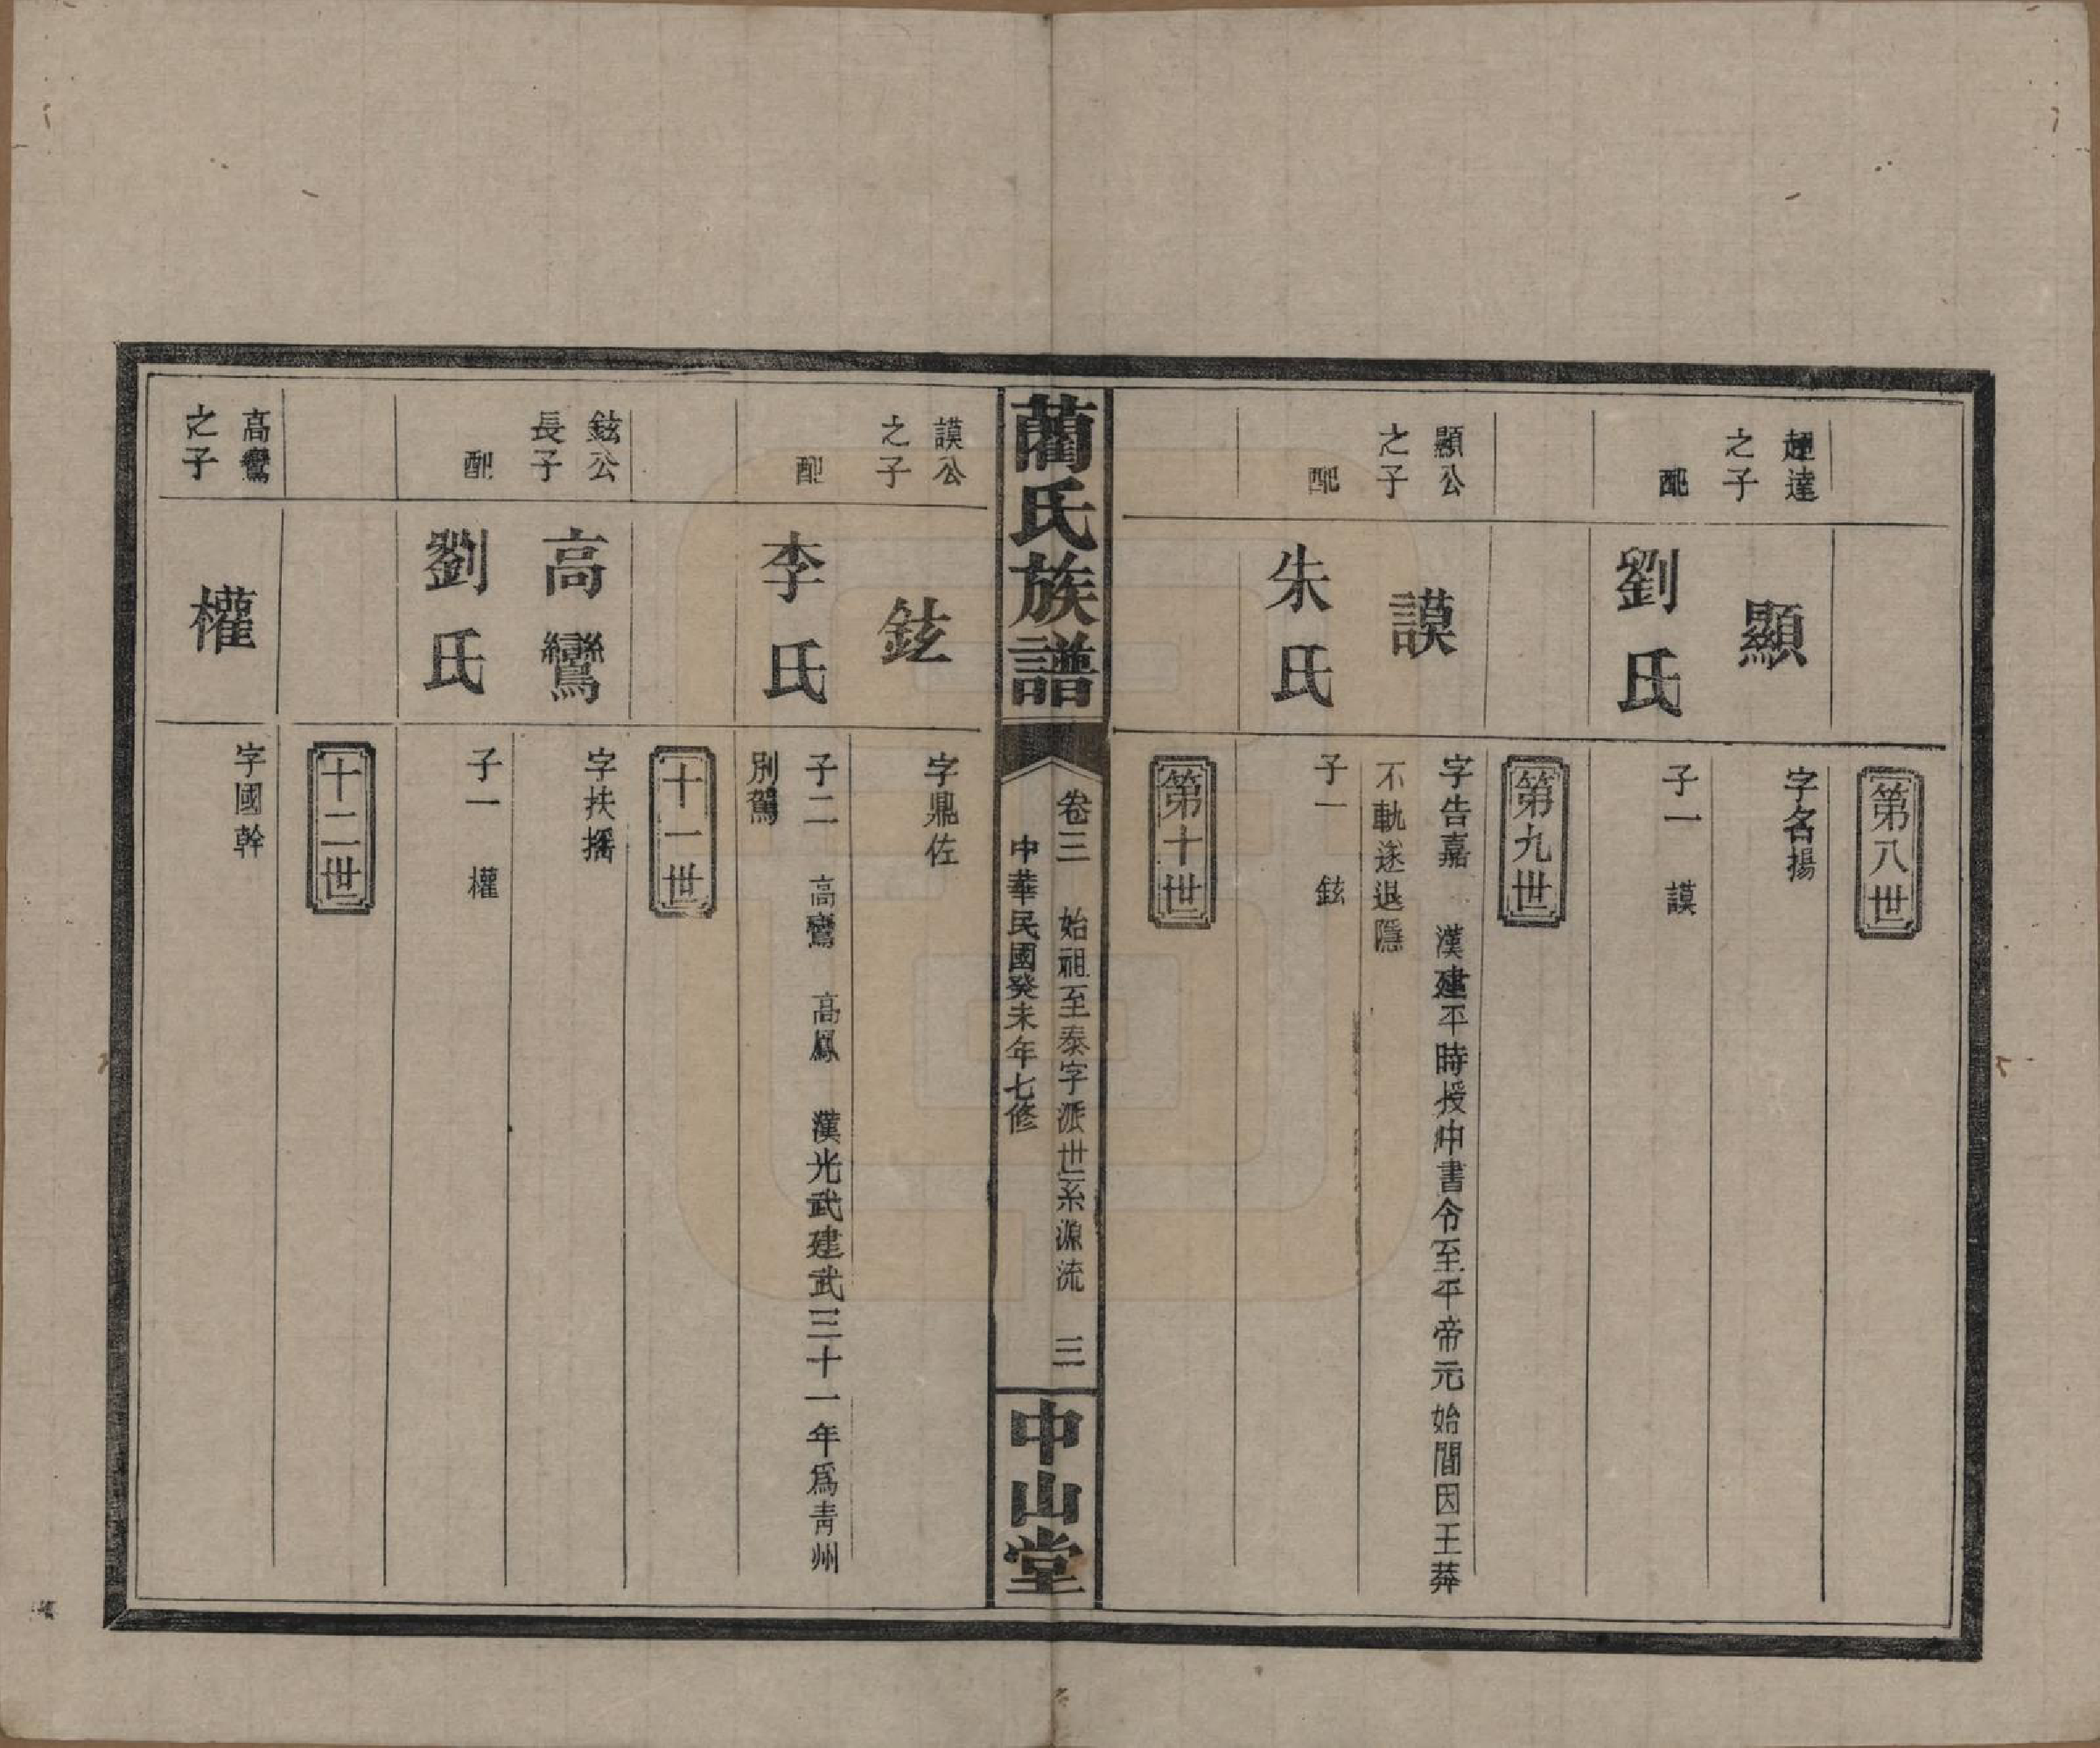 第八世
趕達
之子
顯
字名揚
配
劉氏
子一 謨
第九世
顯公
之子
謨
字告嘉 漢建平時授中書令至平帝元始間因王莽
不軌遂退隱
配
朱氏
子一 鉉
第十世
藺氏族譜
卷三 始祖至泰字派世系源流 三
中華民國癸未年七修
中山堂
謨公
之子
鉉
字鼎佐
配
李氏
子二 高鸞 高鳳 漢光武建武三十一年爲青州
別駕
十一世
鉉公
長子
高鸞
字扶搖
配
劉氏
子一 權
十二世
高鸞
之子
權
字國幹